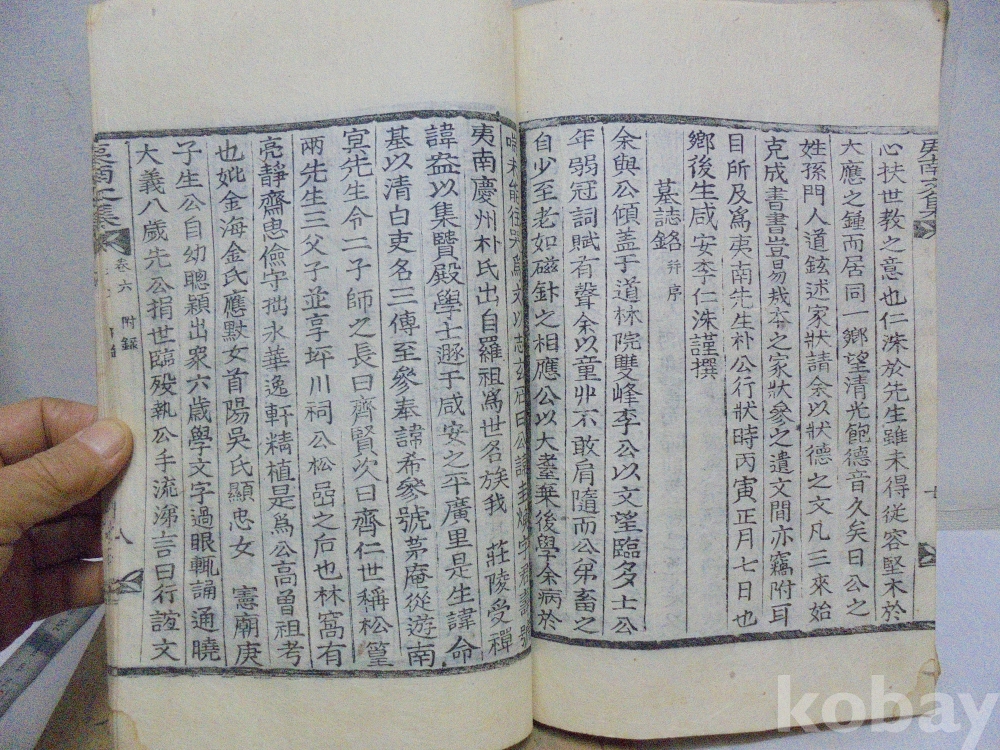 夷南文集
心扶世教之意也仁洙於先生雖未得從容堅木於
大應之鍾而居同一鄉望清光飽德音久矣日公之
姓孫門人道鉉述家狀請余以狀德之文凡三來始
克成書書豈易哉本之家狀參之遺文間亦竊附耳
目所及爲夷南先生朴公行狀時丙寅正月七日也
鄉後生咸安李仁洙謹撰
墓誌銘 幷序
余與公傾蓋于道林院雙峰李公以文望臨多士公
年弱冠詞賦有聲余以童丱不敢肩隨而公弟畜之
自少至老如磁針之相應公以大耋棄後學余病於
夷南慶州朴氏出自羅祖爲世名族我 莊陵受禪
諱益以集賢殿學士遯于咸安之平廣里是生諱命
基以清白吏名三傳至參奉諱希參號茅庵從遊南
冥先生令二子師之長曰齊賢次曰齊仁世稱松篁
兩先生三父子並享坪川祠公松嵒之后也林窩有
亮靜齋思儉守拙永華逸軒精植是爲公高曾祖考
也妣金海金氏應默女首陽吳氏顯忠女 憲廟庚
子生公自幼聰穎出衆六歲學文字過眼輒誦通曉
大義八歲先公捐世臨歿執公手流涕言曰行誼文
夷南文集 卷六 附錄
八
kobay